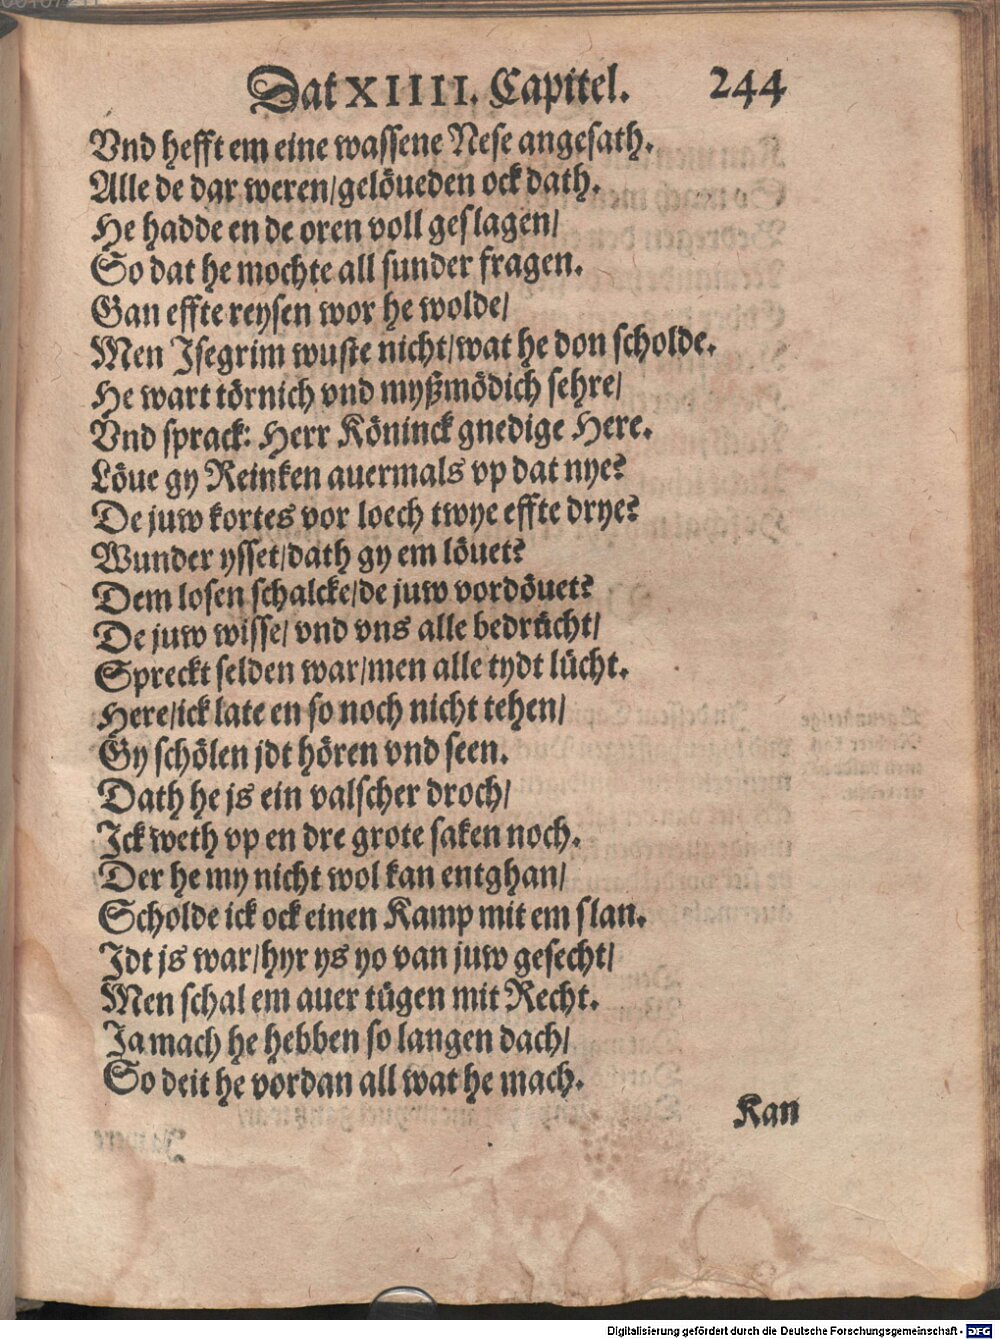 Dat XIIII. Capitel. 244
Vnd hefft em eine wassene Nese angesath.
Alle de dar weren/gelöueden ock dath.
He hadde en de oren voll geslagen/
So dat he mochte all sunder fragen.
Gan effte reysen wor he wolde/
Men Isegrim wuste nicht/wat he don scholde.
He wart törnich vnd myßmödich sehre/
Vnd sprack: Herr Köninck gnedige Here.
Löue gy Reinken auermals vp dat nye?
De juw kortes vor loech twye effte drye?
Wunder ysset/dath gy em löuet?
Dem losen schalcke/de juw vordöuet?
De juw wisse/ vnd vns alle bedrücht/
Spreckt selden war/men alle tydt lücht.
Here/ick late en so noch nicht tehen/
Gy schölen jdt hören vnd seen.
Dath he js ein valscher droch/
Ick weth vp en dre grote saken noch.
Der he my nicht wol kan entghan/
Scholde ick ock einen Kamp mit em slan.
Idt js war/hyr ys yo van juw gesecht/
Men schal em auer tügen mit Recht.
Ja mach he hebben so langen dach/
So deit he vordan all wat he mach.
Kan
Digitalisierung gefördert durch die Deutsche Forschungsgemeinschaft - DFG